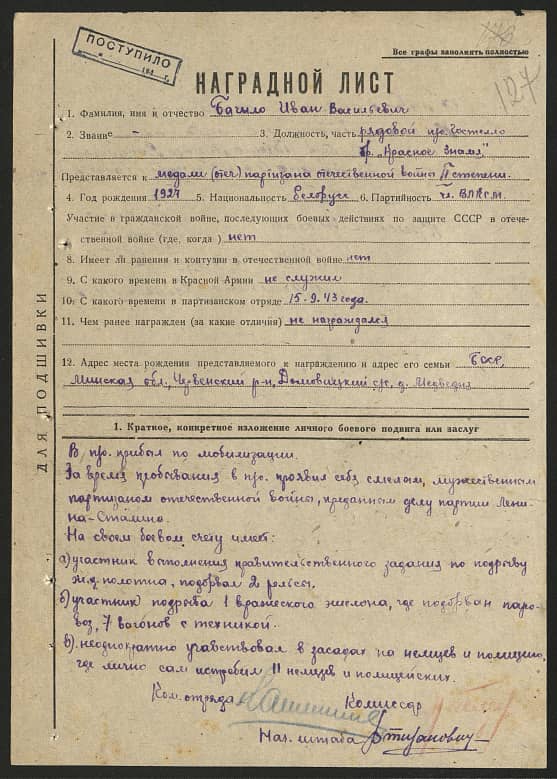 ПОСТУПИЛО
194 г.
127
Все графы заполнять полностью
НАГРАДНОЙ ЛИСТ
1. Фамилия, имя и отчество Бачило Иван Васильевич
2. Звание - 3. Должность, часть рядовой п/о Гастелло
бр. „Красное Знамя"
Представляется к медали партизана отечественной войны II степени.
4. Год рождения 1927 5. Национальность Белорус 6. Партийность чл. ВЛКСМ.
Участие в гражданской войне, последующих боевых действиях по защите СССР в отече-
ственной войне (где, когда) нет
8. Имеет ли ранения и контузии в отечественной войне нет
9. С какого времени в Красной Армии не служил
10. С какого времени в партизанском отряде 15-9.43 года.
11. Чем ранее награжден (за какие отличия) не награждался
12. Адрес места рождения представляемого к награждению и адрес его семьи БССР,
Минская обл., Червенский р-н, Домовицкий с/с. д.
ДЛЯ ПОДШИВКИ
1. Краткое, конкретное изложение личного боевого подвига или заслуг
В п/о. прибыл по мобилизации.
За время пребывания в п/о. проявил себя смелым, мужественным
партизаном отечественной войны, преданным делу партии Лени-
на-Сталина.
На своём боевом счету имеет:
а) участник выполнения правительственного задания по подрыву
ж.д. полотна, подорвал 2 рельсы.
б) участник подрыва 1 вражеского эшелона, где подорван паро-
воз, 7 вагонов с техникой.
в) неоднократно учавствовал в засадах на немцев и полицию,
где лично сам истребил 11 немцев и полицейских.
Ком. отряда Комиссар
Нач. штаба